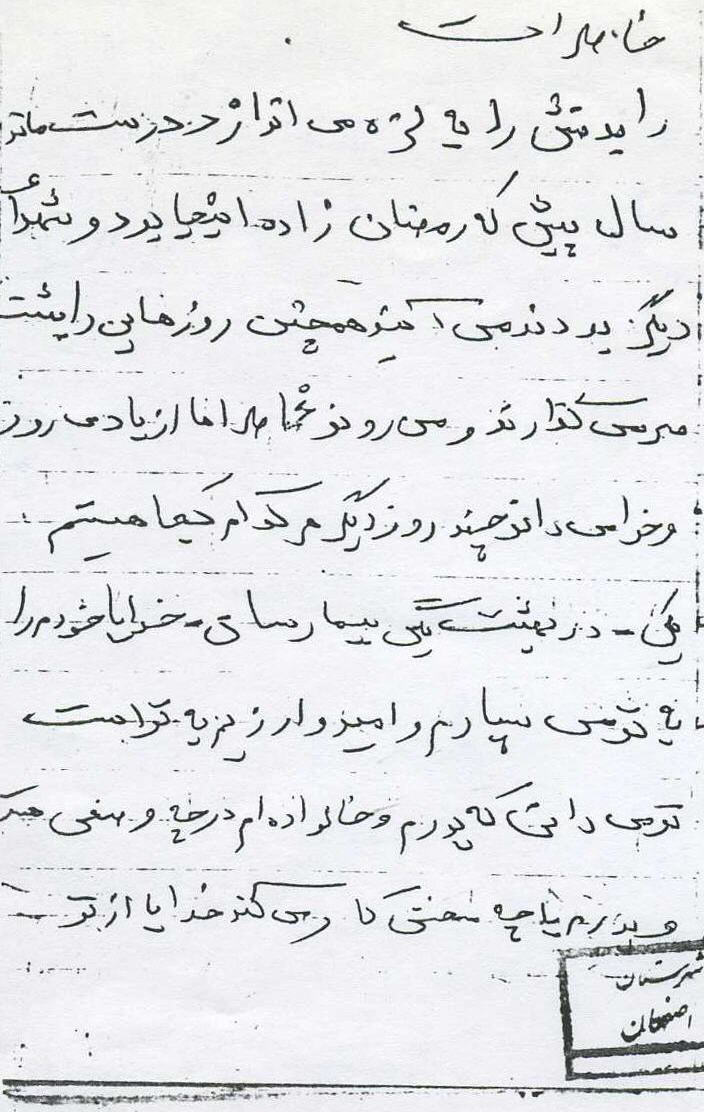 خاطرات
را بدنش را به لرزه می اندازد درست مانند
سال پیش که رمضان زاده اینجا بود و شهدای
دیگر بودند می آیند همچنین روزهایی را پشت
سر می گذارند و می روند اما از یاد می روند
و خدا می داند چند روز دیگر هر کدام کجا هستیم
خدایا خودم را
به تو می سپارم و امیدوارزیم به تو است
تو می دانی که پدرم و خانواده ام در چه وضعی هستند
و پدرم با چه سختی کار می کند خدایا از تو
شهرستان
اصفهان